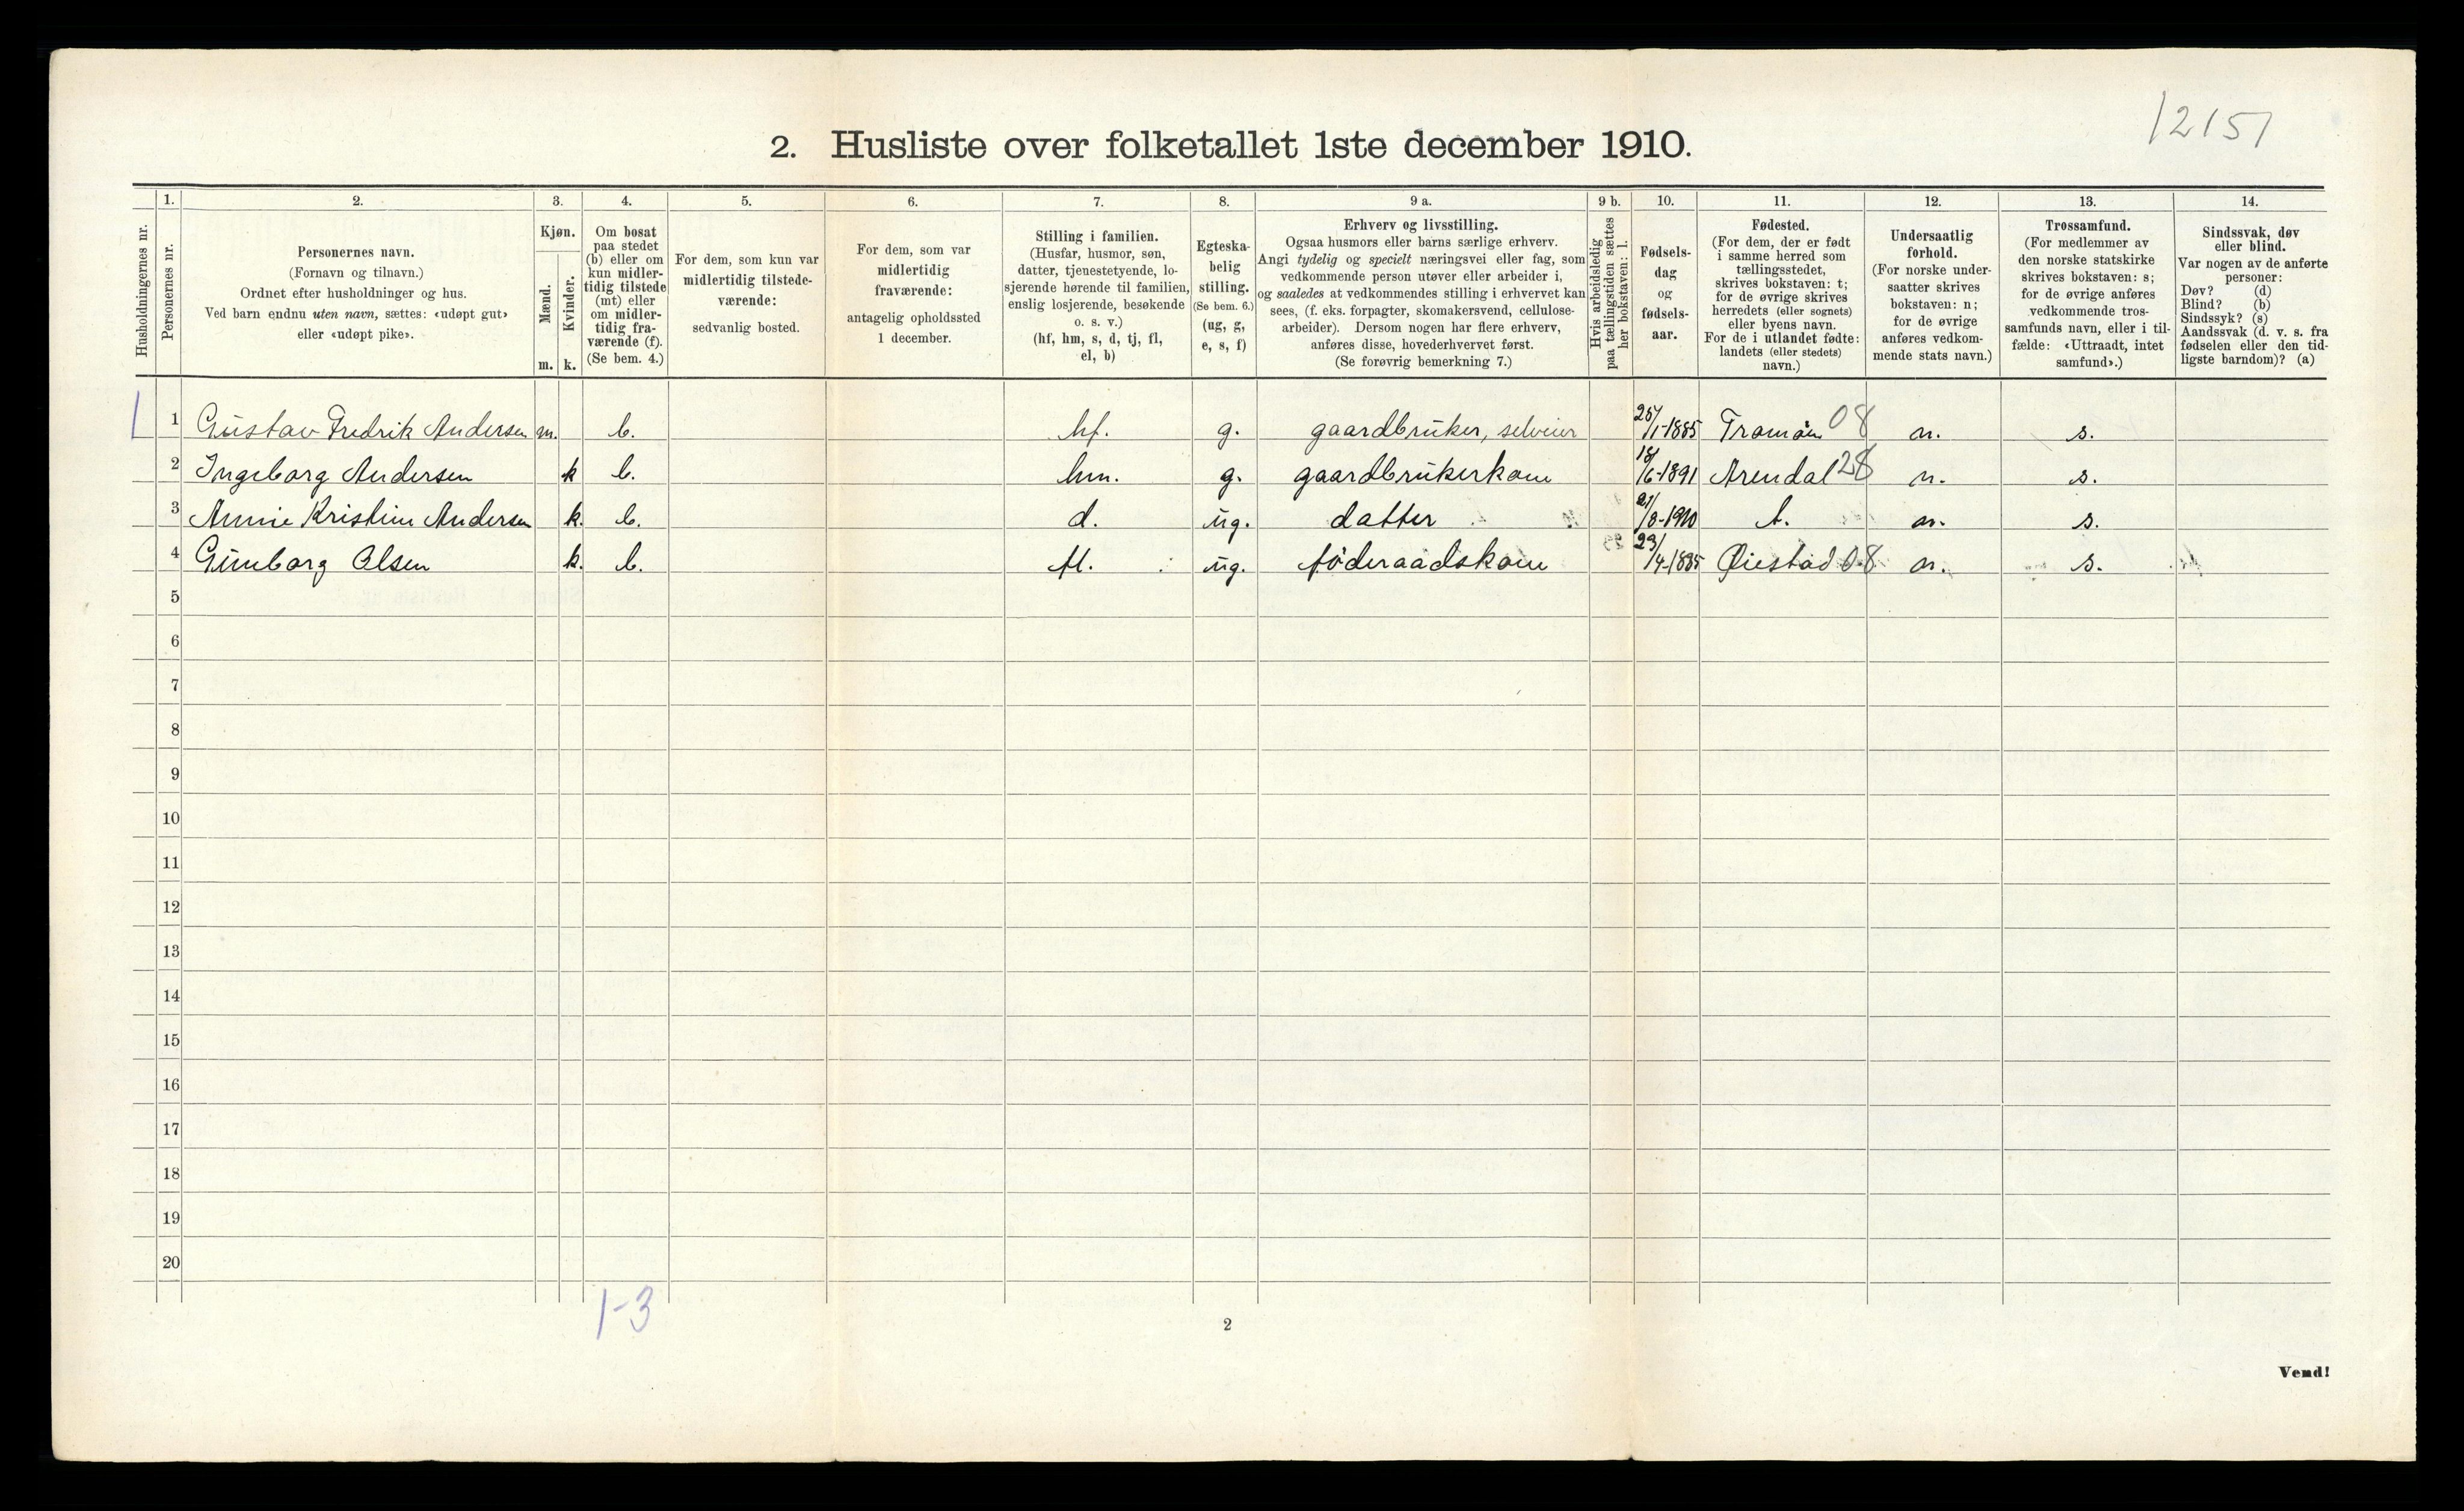 12151
2. Husliste over folketallet 1ste december 1910.
Husholdningernes nr.
1.
Personernes nr.
2.
Personernes navn.
(Fornavn og tilnavn.)
Ordnet efter husholdninger og hus.
Ved barn endnu uten navn, sættes: «udøpt gut»
eller «udøpt pike».
3.
Kjøn.
Mænd.
Kvinder.
m. k.
4.
Om bosat
paa stedet
(b) eller om
kun midler-
tidig tilstede
(mt) eller
om midler-
tidig fra-
værende (f).
(Se bem. 4.)
5.
For dem, som kun var
midlertidig tilstede-
værende:
sedvanlig bosted.
6.
For dem, som var
midlertidig
fraværende:
antagelig opholdssted
1 december.
7.
Stilling i familien.
(Husfar, husmor, søn,
datter, tjenestetyende, lo-
sjerende hørende til familien,
enslig losjerende, besøkende
o. s. v.)
(hf, hm, s, d, tj, fl,
el, b)
8.
Egteska-
belig
stilling.
(Se bem. 6.)
(ug, g,
e, s, f)
9 a.
Erhverv og livsstilling.
Ogsaa husmors eller barns særlige erhverv.
Angi tydelig og specielt næringsvei eller fag, som
vedkommende person utøver eller arbeider i,
og saaledes at vedkommendes stilling i erhvervet kan
sees, (f. eks. forpagter, skomakersvend, cellulose-
arbeider). Dersom nogen har flere erhverv,
anføres disse, hovederhvervet først.
(Se forøvrig bemerkning 7.)
9 b.
Hvis arbeidsledig
paa tællingstiden sættes
her bokstaven: l.
10.
Fødsels-
dag
og
fødsels-
aar.
11.
Fødested.
(For dem, der er født
i samme herred som
tællingsstedet,
skrives bokstaven: t;
for de øvrige skrives
herredets (eller sognets)
eller byens navn.
For de i utlandet fødte:
landets (eller stedets)
navn.)
12.
Undersaatlig
forhold.
(For norske under-
saatter skrives
bokstaven: n;
for de øvrige
anføres vedkom-
mende stats navn.)
13.
Trossamfund.
(For medlemmer av
den norske statskirke
skrives bokstaven: s;
for de øvrige anføres
vedkommende tros-
samfunds navn, eller i til-
fælde: «Uttraadt, intet
samfund».)
14.
Sindssvak, døv
eller blind.
Var nogen av de anførte
personer:
Døv? (d)
Blind? (b)
Sindssyk? (s)
Aandssvak (d. v. s. fra
fødselen eller den tid-
ligste barndom)? (a)
1 1 Gustav Fredrik Andersen m. b. hf. g. gaardbruker, selveier 25/1-1885 Tromøen 08 n. s.
2 Ingeborg Andersen k b. hm. g. gaardbrukerkone 18/6-1891 Arendal 28 n. s.
3 Annie Kristine Andersen k. b. d. ug. datter 21/8-1910 t. n. s.
4 Gunborg Olsen k. b. fl. ug. föderaadskone 23/4-1885 Øiestad 08 n. s.
5
6
7
8
9
10
11
12
13
14
15
16
17
18
19
20
1-3
2
Vend!